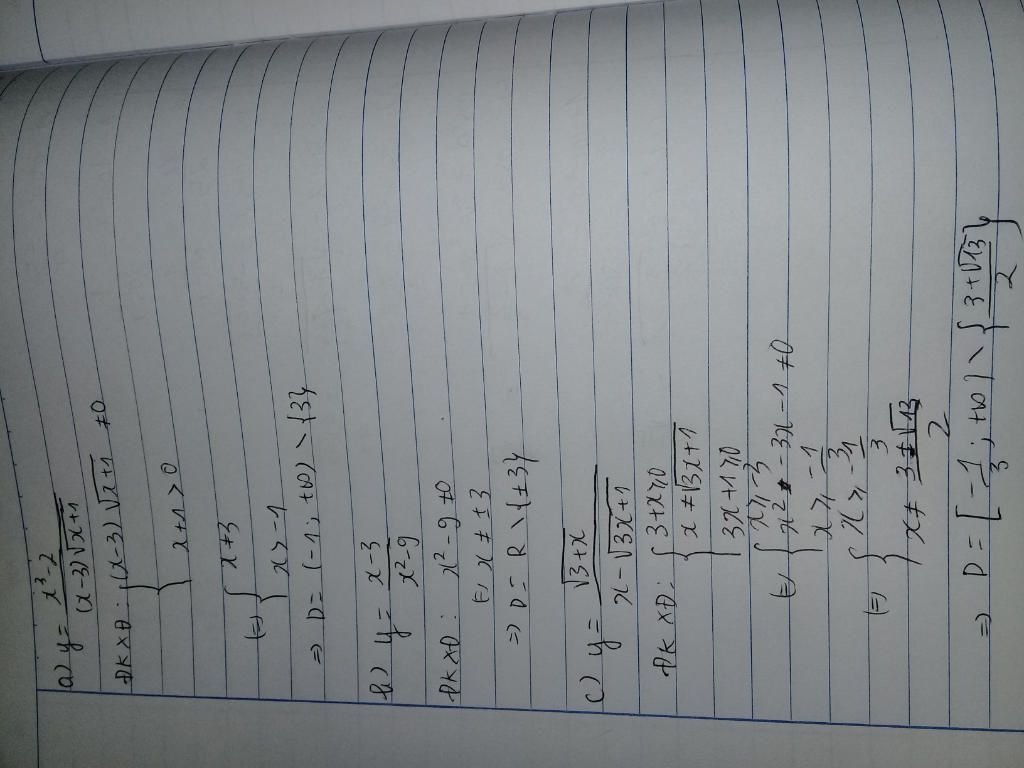 a) y = (x³-2)/((x-3)√(x+1))
ĐKXĐ: { (x-3)√(x+1) ≠ 0
x+1 > 0
(=) { x ≠ 3
x > -1
=> D = (-1; +∞) \ {3}
b) y = (x-3)/(x²-9)
ĐKXĐ: x²-9 ≠ 0
(=) x ≠ ±3
=> D = R \ {±3}
c) y = √(3+x)/(x-√(3x+1))
ĐKXĐ: { 3+x ≥ 0
x ≠ √(3x+1)
3x+1 ≥ 0
(=) { x ≥ -3
x²-3x-1 ≠ 0
x ≥ -1/3
(=) { x ≥ -1/3
x ≠ (3±√13)/2
=> D = [-1/3; +∞) \ {(3+√13)/2}